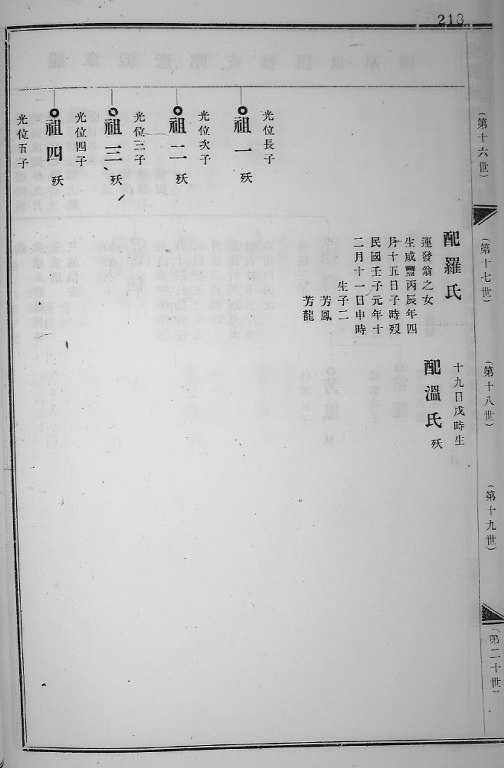 213
(第十六世)
(第十七世)
(第十八世)
(第十九世)
(第二十世)
十九日戌時生
配溫氏 殀
配羅氏
運發翁之女
生咸豐丙辰年四
月十五日子時歿
民國壬子元年十
二月十一日申時
生子二
芳鳳
芳龍
光位長子
祖一 殀
光位次子
祖二 殀
光位三子
祖三 殀
光位四子
祖四 殀
光位五子